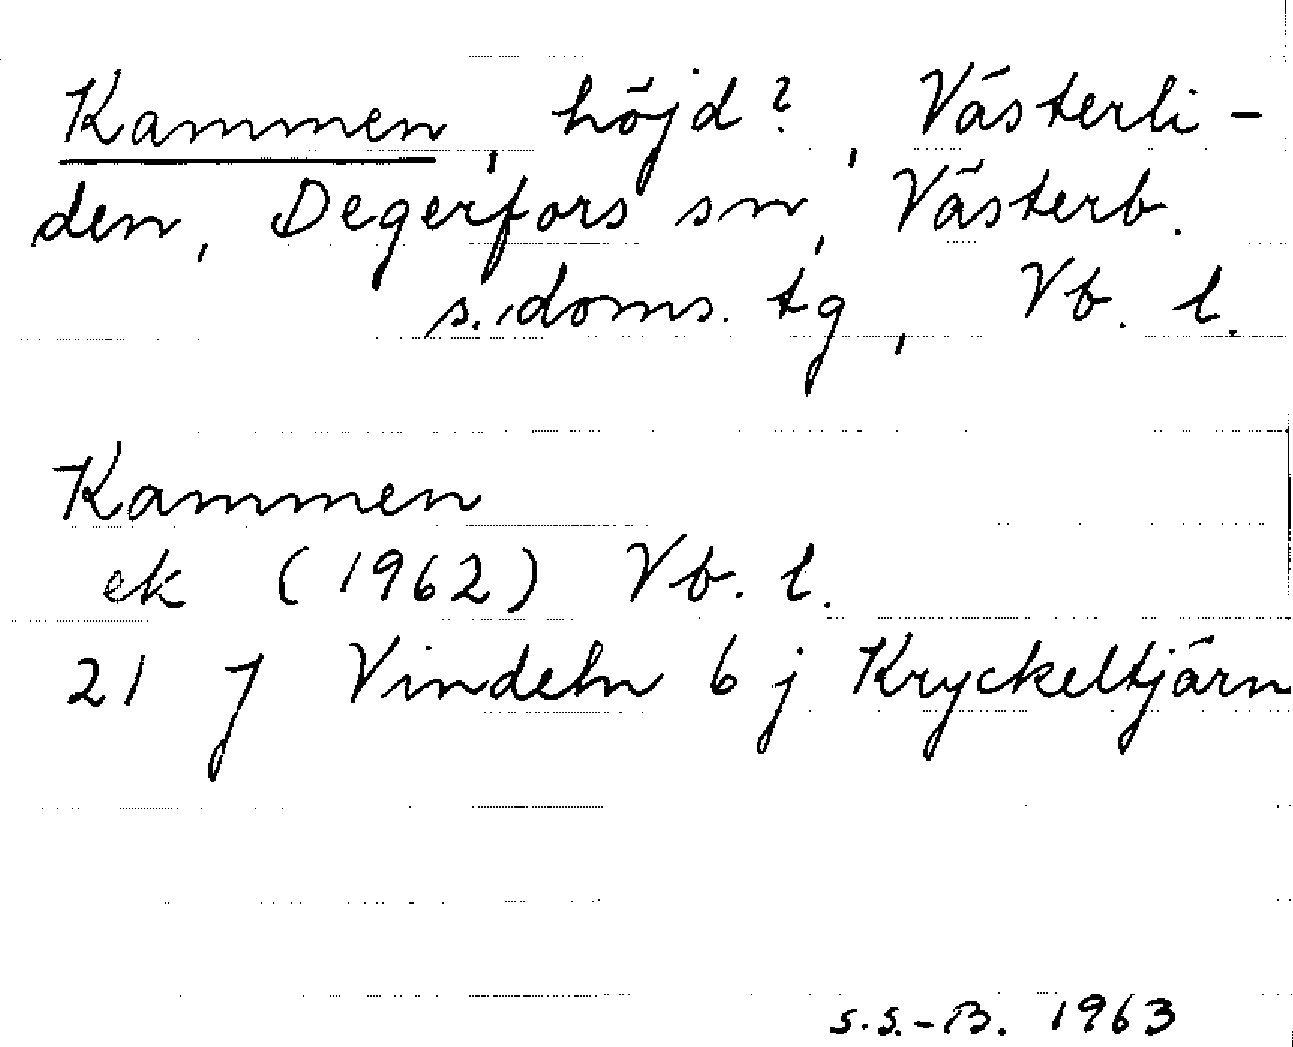 Kammen, höjd?, Västerli-
den, Degerfors sn, Västerb.
s. doms. tg, Vb. l.
Kammen
ek (1962) Vb. l.
21 J Vindeln 6 j Kryckeltjärn
S.S.-B. 1963